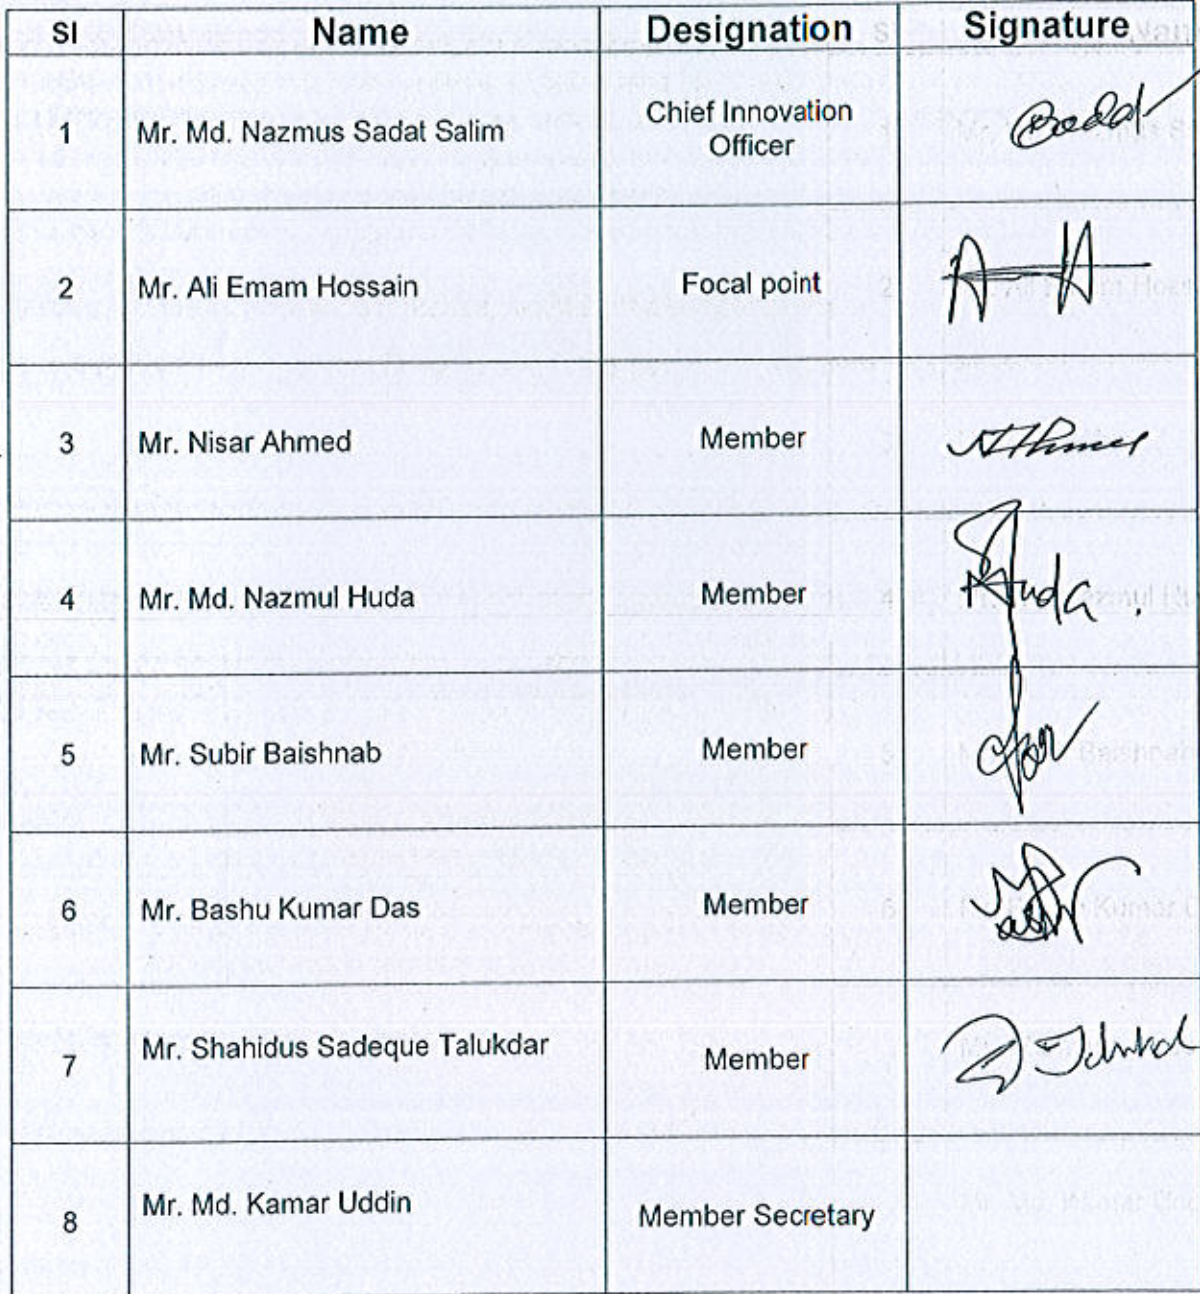 Sl Name Designation Signature
1 Mr. Md. Nazmus Sadat Salim Chief Innovation
Officer
2 Mr. Ali Emam Hossain Focal point
3 Mr. Nisar Ahmed Member
4 Mr. Md. Nazmul Huda Member Huda
5 Mr. Subir Baishnab Member
6 Mr. Bashu Kumar Das Member
7 Mr. Shahidus Sadeque Talukdar Member
8 Mr. Md. Kamar Uddin Member Secretary